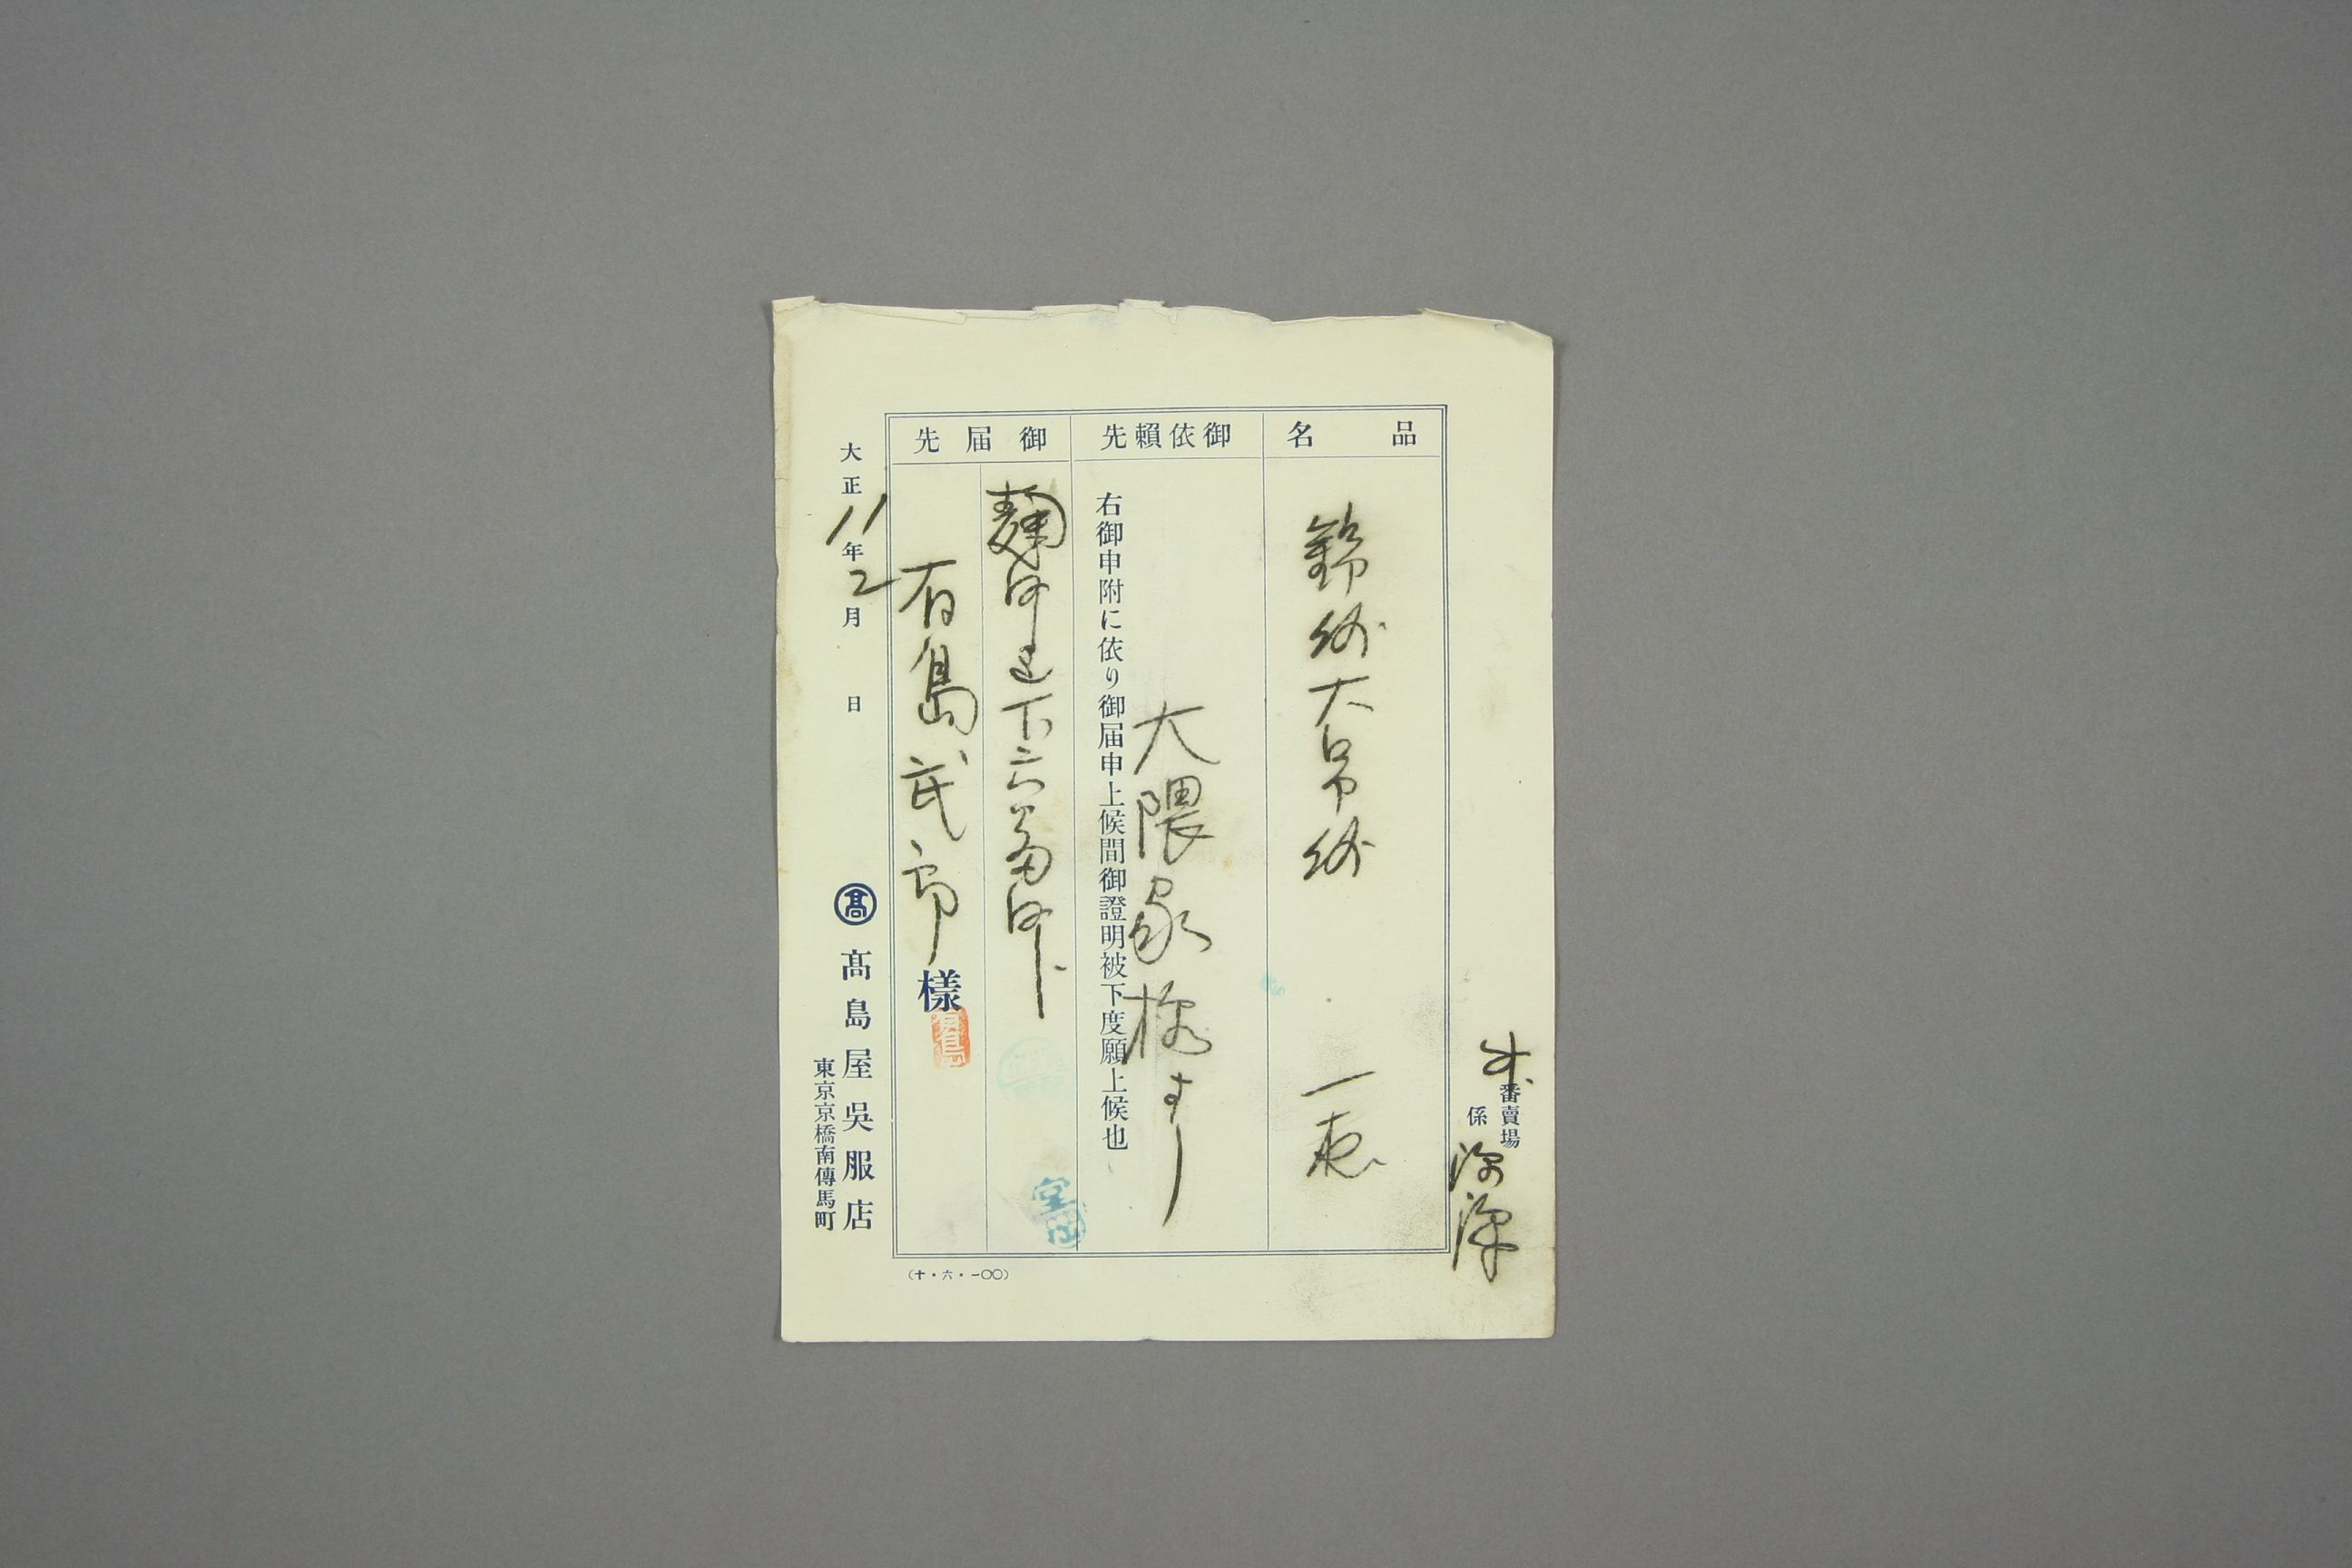 番賣場
係
品名
錦紗大帛紗 一
御依賴先
大隈家様ゟ
右御申附に依り御届申上候間御證明被下度願上候也
御届先
麹町區下六番町
有島武郎様
大正11年2月 日
髙
髙島屋吳服店
東京京橋南傳馬町
(十・六・一〇〇)